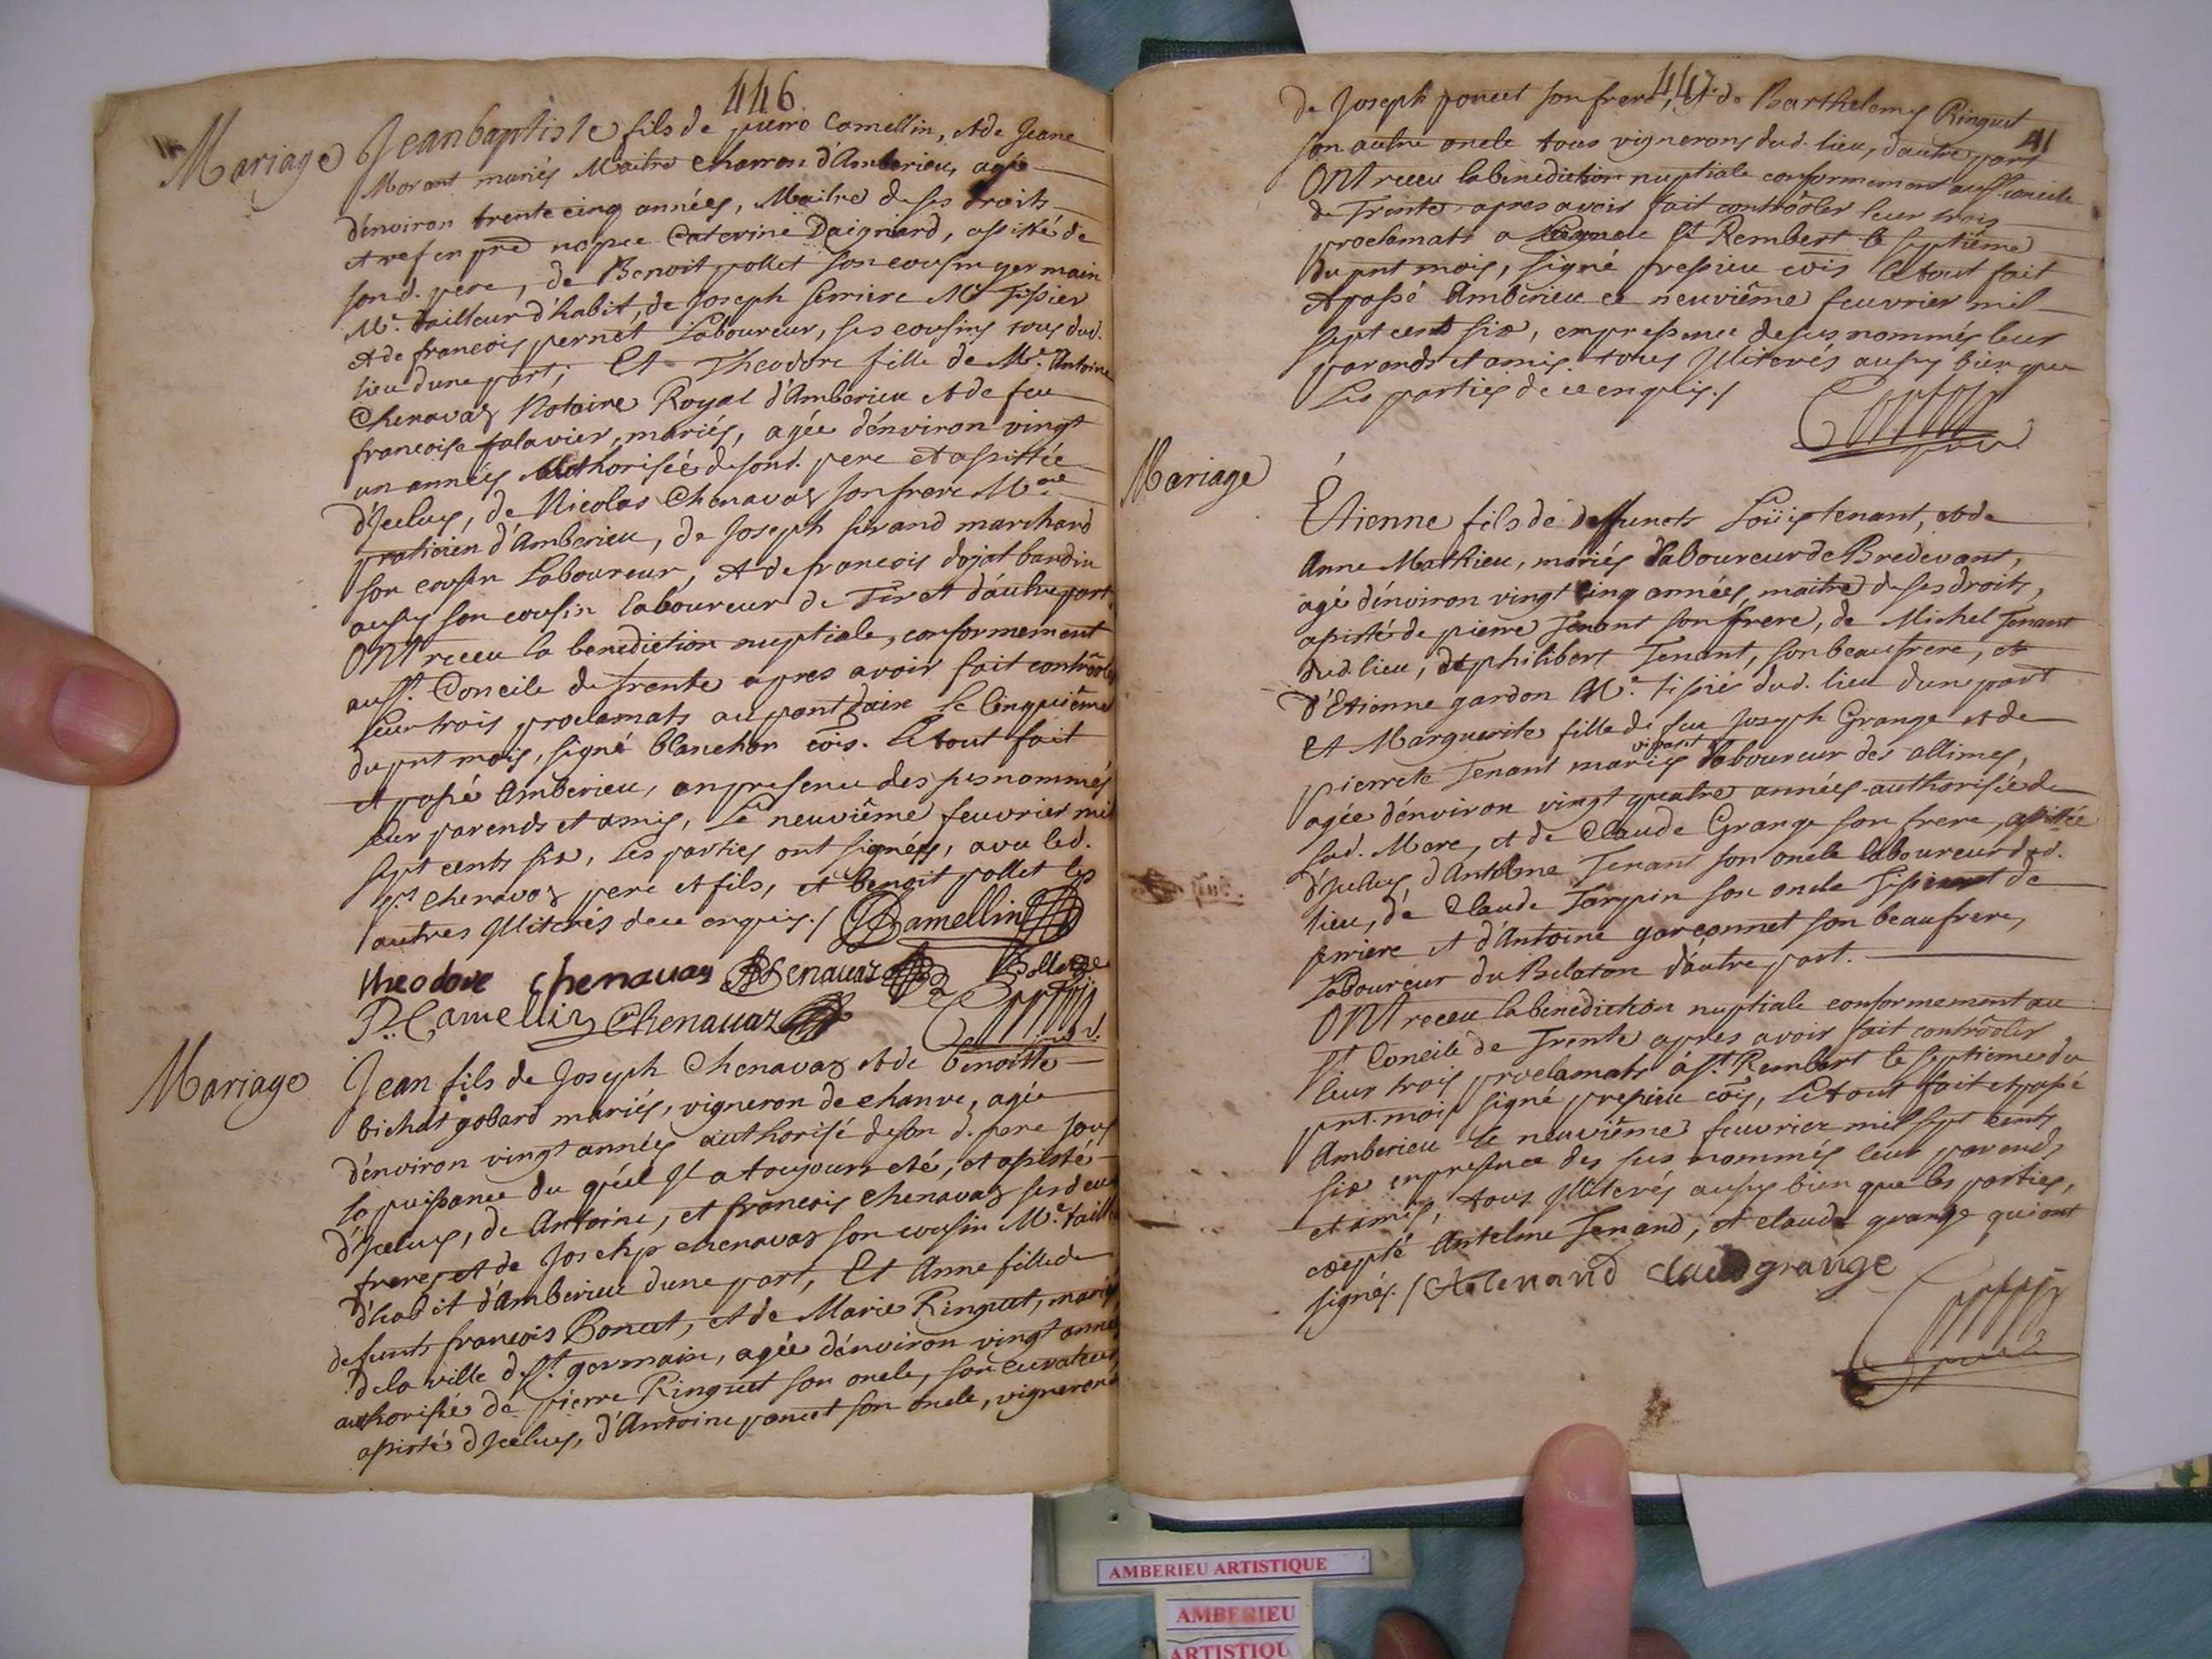 446
Mariage Jean baptiste fils de pierre Camellin, et de Jeane
Morant mariés Maitre charron d'Amberieu, agé
d'environ trente cinq années, Maitre de ses droits
et vef en pre nopce Caterine Daignard, assisté de
son d. pere, de Benoit pollet son cousin germain
Mre. tailleur d'habit, de Joseph ferriere Mre Tissier
et de francois pernet Laboureur, ses cousins tous dud.
lieu d'une part; Et Theodore fille de Mre. Antoine
Chenavaz Notaire Royal d'Amberieu et de feu
francoise falavier, mariés, agée d'environ vingt
un années Authorisée de sond. pere et assistée
d'Jceluy, de Nicolas Chenavaz son frere
praticien d'Amberieu, de Joseph marchand
son cousin Laboureur, et de francois dojat bandin
aussy son cousin laboureur de Tiret d'autre part.
ONT receu la benediction nuptiale, conformement
au st. Concile de trente apres avoir fait contrôoler
leur trois proclamats au pont dain le Cinquiême
du pnt mois, signé blanchon cõis. Le tout fait
et passé Amberieu, en presence des susnommés
leur parends et amis, le neuviême feuvrier mil
sept cents six, Les parties ont signées, avec led.
Sr. Chenavaz pere et fils, et benoit pollet les
autres Jlliterés de ce enquis./ JBCamellin
theodore chenauaz Chenauaz BPollet
P. Camellin Chenauaz
Mariage Jean fils de Joseph Chenavaz et de benoitte
bichat gobard mariés, vigneron de chanve, agée
d'environ vingt années authorisé de son d. pere sous
la puissance du quél Jl a toujours eté, et assisté
d'Jceluy, de Antoine, et francois chenavaz ses deux
freres et de Josehp chenavaz son cousin Mre. taill
d'habit d'Amberieu dune part, Et Anne fille de
defunts francois Poncet, et de Marie Ringuet, mariés
de la ville d st. germain, agée d'environ vingt anné
authorisée de pierre Ringuet son oncle, son curateur,
assistée d'Jceluy, d'Antoine poncet son oncle, vignerons
447
41
de Joseph poncet son frere, et de Barthelemy Ringuet
son autre oncle tous vignerons dud. lieu, d'autre part
ONT receu la benediction nuptiale conformement au st. concile
de Trente apres avoir fait contrôoler leur trois
proclamats a St Rembert le septiême
du pnt mois, signé cõis le tout fait
et passé Amberieu ce neuviême feuvrier mil
sept cents six, en presence desus nommés leur
parends et amis tous Jlliterés aussy bien que
Les parties de ce enquis./
Mariage
Étienne fils de deffuncts Loüis tenant, et de
Anne Mathieu, mariés Laboureur de Bredevant,
agé d'environ vingt cinq années, maitre de ses droits,
assisté de pierre Tenant son frere, de Michel Tenant
dud. lieu, de philibert Tenant, son beaufrere, et
d'Etienne gardon Mre. tissié dud. lieu d'une part
Et Marguerite fille de feu Joseph Grange et de
vivant
pierrete Tenant mariés Laboureur des allimes,
agée d'environ vingt quatre années authorisée de
sad. Mere, et de Claude Grange son frere, assistée
d'Jceluy, d'Antelme Tenant son oncle laboureur dud.
lieu, de Claude Tarpin son oncle Tissier de
ferriere et d'Antoine garconnet son beaufrere,
Laboureur du Belaton d'autre part.
ONT receu la benediction nuptiale conformement au
st Concile de Trente apres avoir fait contrôoler
leur trois proclamats á st. Rembert le septieme du
pnt. mois signé cõis, Le tout fait et passé
Amberieu le neuviême feuvrier mil sept cents
six en presence des sus nommés leur parends
et amis, tous Jlliterés aussy bien que les parties,
excepté Antelme Tenand, et claude grange qui ont
signés./ A tenand claude grange
AMBERIEU ARTISTIQUE
AMBERIEU
ARTISTIQU